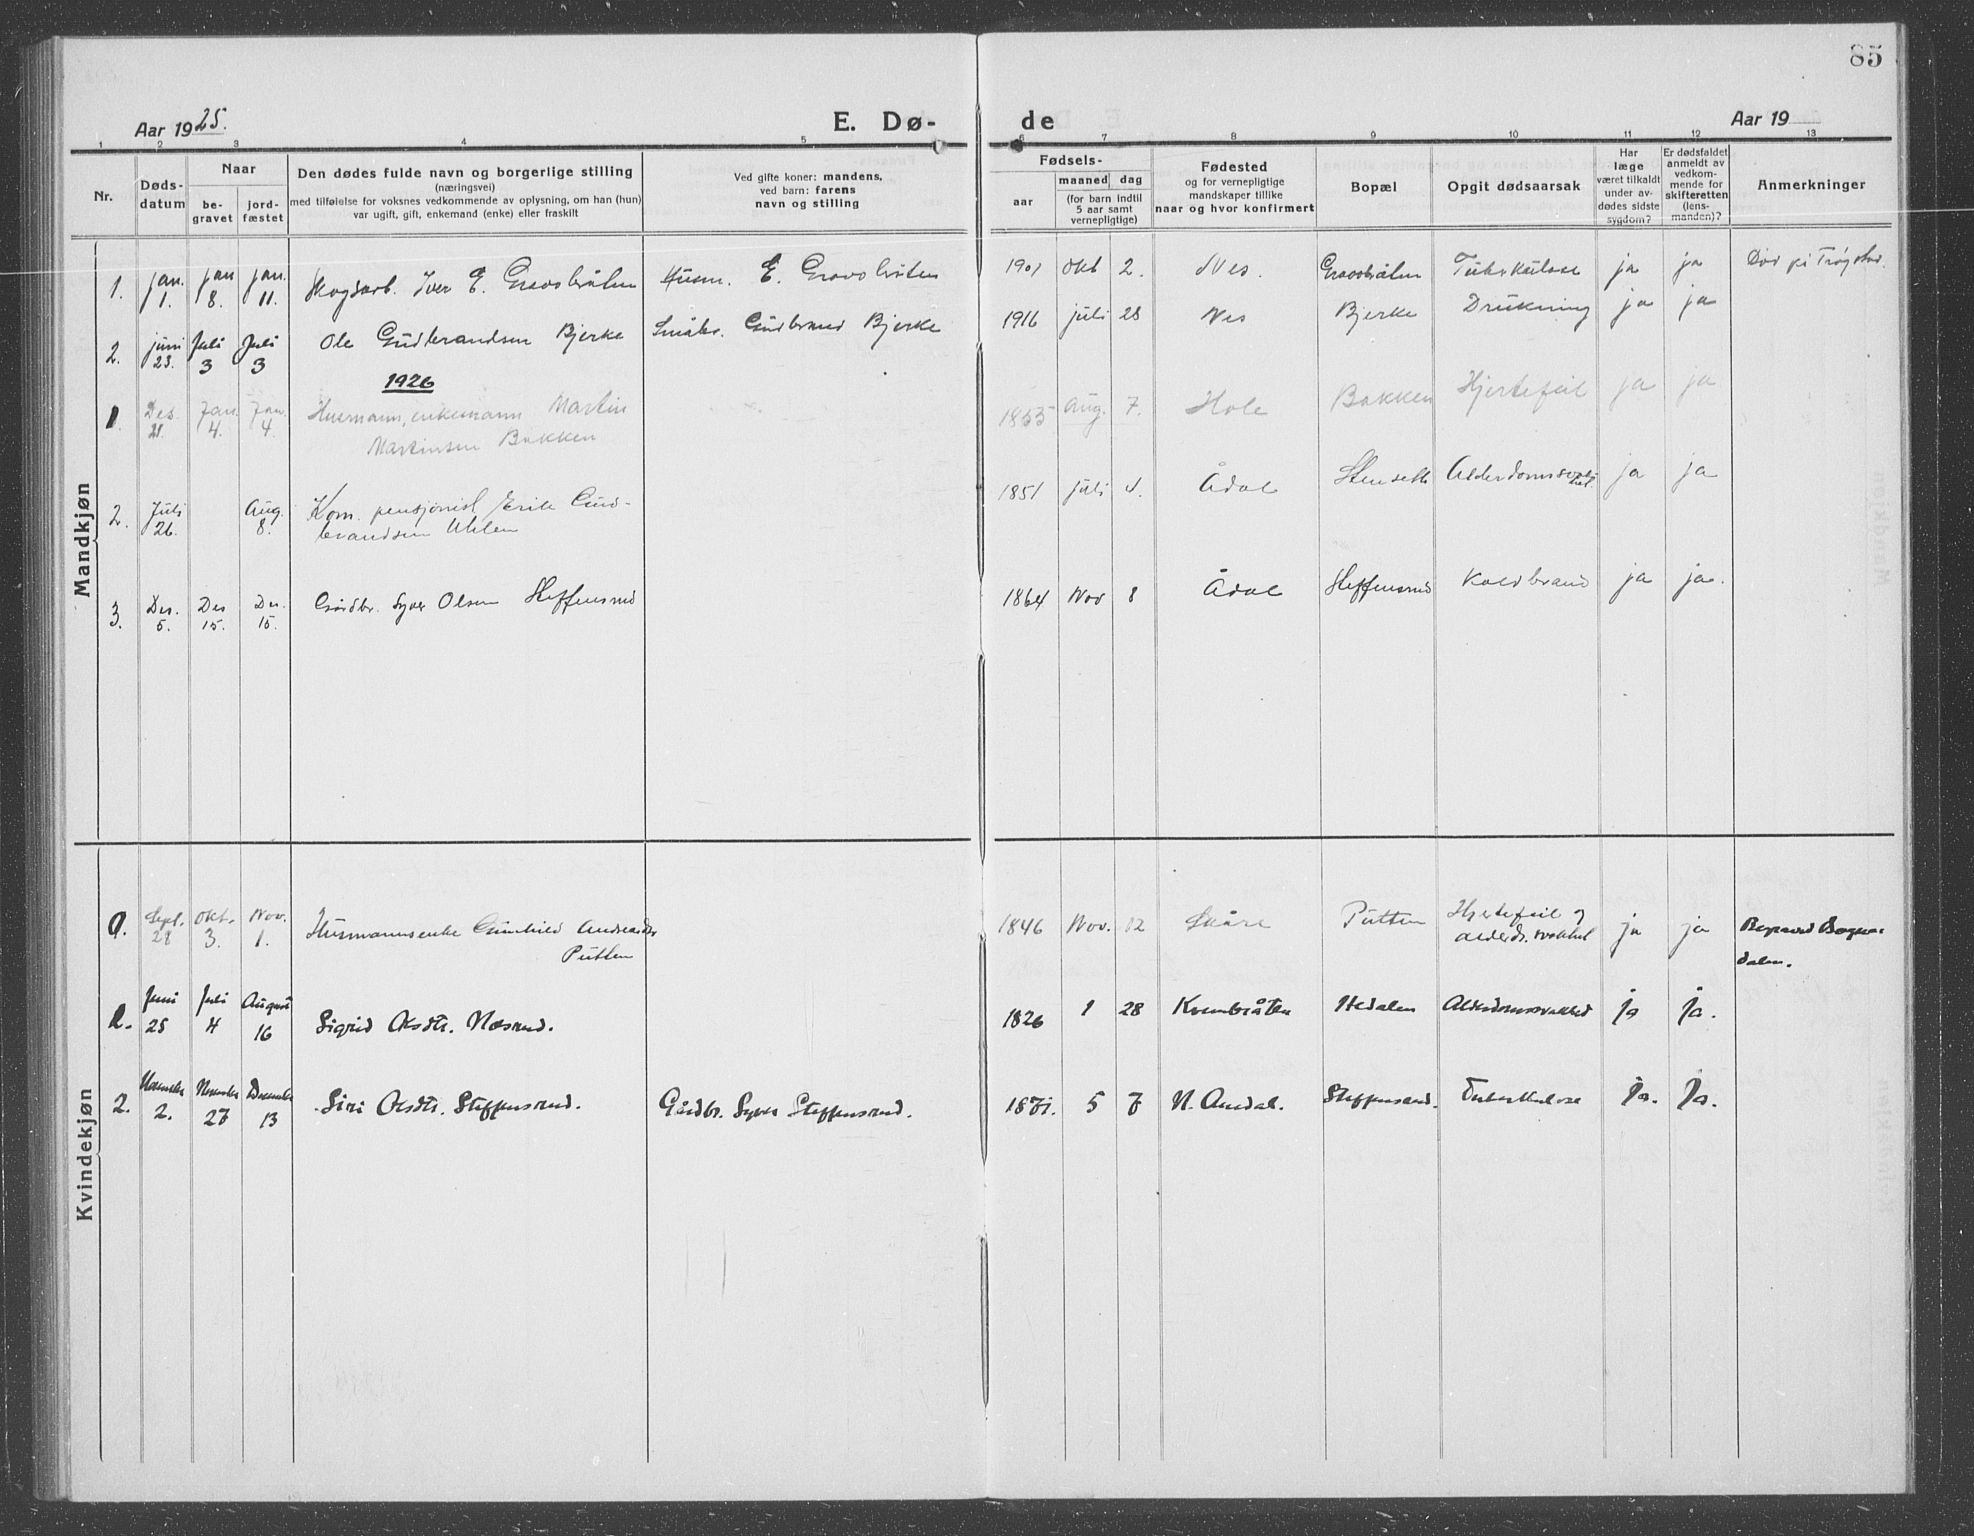 85
Aar 1925.
E. Dø-
de
Aar 19
1 2 3 4 5 6 7 8 9 10 11 12 13
Nr.
Døds-
datum
Naar
be-
gravet
jord-
fæstet
Den dødes fulde navn og borgerlige stilling
(næringsvei)
med tilføielse for voksnes vedkommende av oplysning, om han (hun)
var ugift, gift, enkemand (enke) eller fraskilt
Ved gifte koner: mandens,
ved barn: farens
navn og stilling
Fødsels-
aar
maaned
dag
(for barn indtil
5 aar samt
vernepligtige)
Fødested
og for vernepligtige
mandskaper tillike
naar og hvor konfirmert
Bopæl
Opgit dødsaarsak
Har
læge
været tilkaldt
under av-
dødes sidste
sygdom?
Er dødsfaldet
anmeldt av
vedkom-
mende for
skifteretten
(lens-
manden)?
Anmerkninger
Mandkjøn
1. Jan. 1. Jan 8. Jan. 11. Skogsarb. Iver E. Gravobråten Husm. E. Gravobråten 1901 Okt 2. Nes. Gravobråten Tuberkulose ja ja Død på
2. juni 23. Juli 3 Juli 3 Ole Gudbrandsen Bjerke Småbr. Gudbrand Bjerke 1916 juli 28 Nes Bjerke Drukning ja ja
1926
1. Des. 21. Jan. 4. Jan. 4. Husmann, enkemann Martin
Martinsen Bakken 1855 Aug. 7. Hole Bakken Hjertefeil ja ja
2. Juli 26. Aug. 8. Kom. pensjonist Erik Gud-
brandsen Uhlen 1851 juli 4. Ådal Stensett Alderdomssvakhet ja ja
3. Des. 5. Des 15. Des. 15. Gårdbr. Syver Olsen Steffensrud 1864 Nov 8 Ådal Steffensrud Koldbrand ja ja.
Kvindekjøn
Sept. 28 Okt. 3. Nov. 1. Husmannsenke Gunhild Andreasdtr
Putten 1846 Nov. 12 Skåre Putten Hjertefeil og
alderds. svakhet ja ja Begravet Begna-
dalen.
Juni 25 Juli 4 August 16 Sigrid Olsdtr. Næsrud. 1826 1 28 Kvembråten Hedalen Alderdomssvakhed ja ja.
2. November 2. November 27 December 13 Siri Olsdtr. Steffensrud. Gårdbr. Syver Steffensrud. 1871. 5 7 N. Aurdal. Steffensrud. Tuberkulose ja. ja.